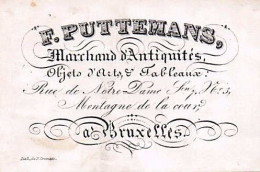 F. PUTTEMANS,
Marchand d'Antiquités,
Objets d'Arts, & Tableaux;
Rue de Notre Dame N.º 3,
Montagne de la cour,
à Bruxelles.